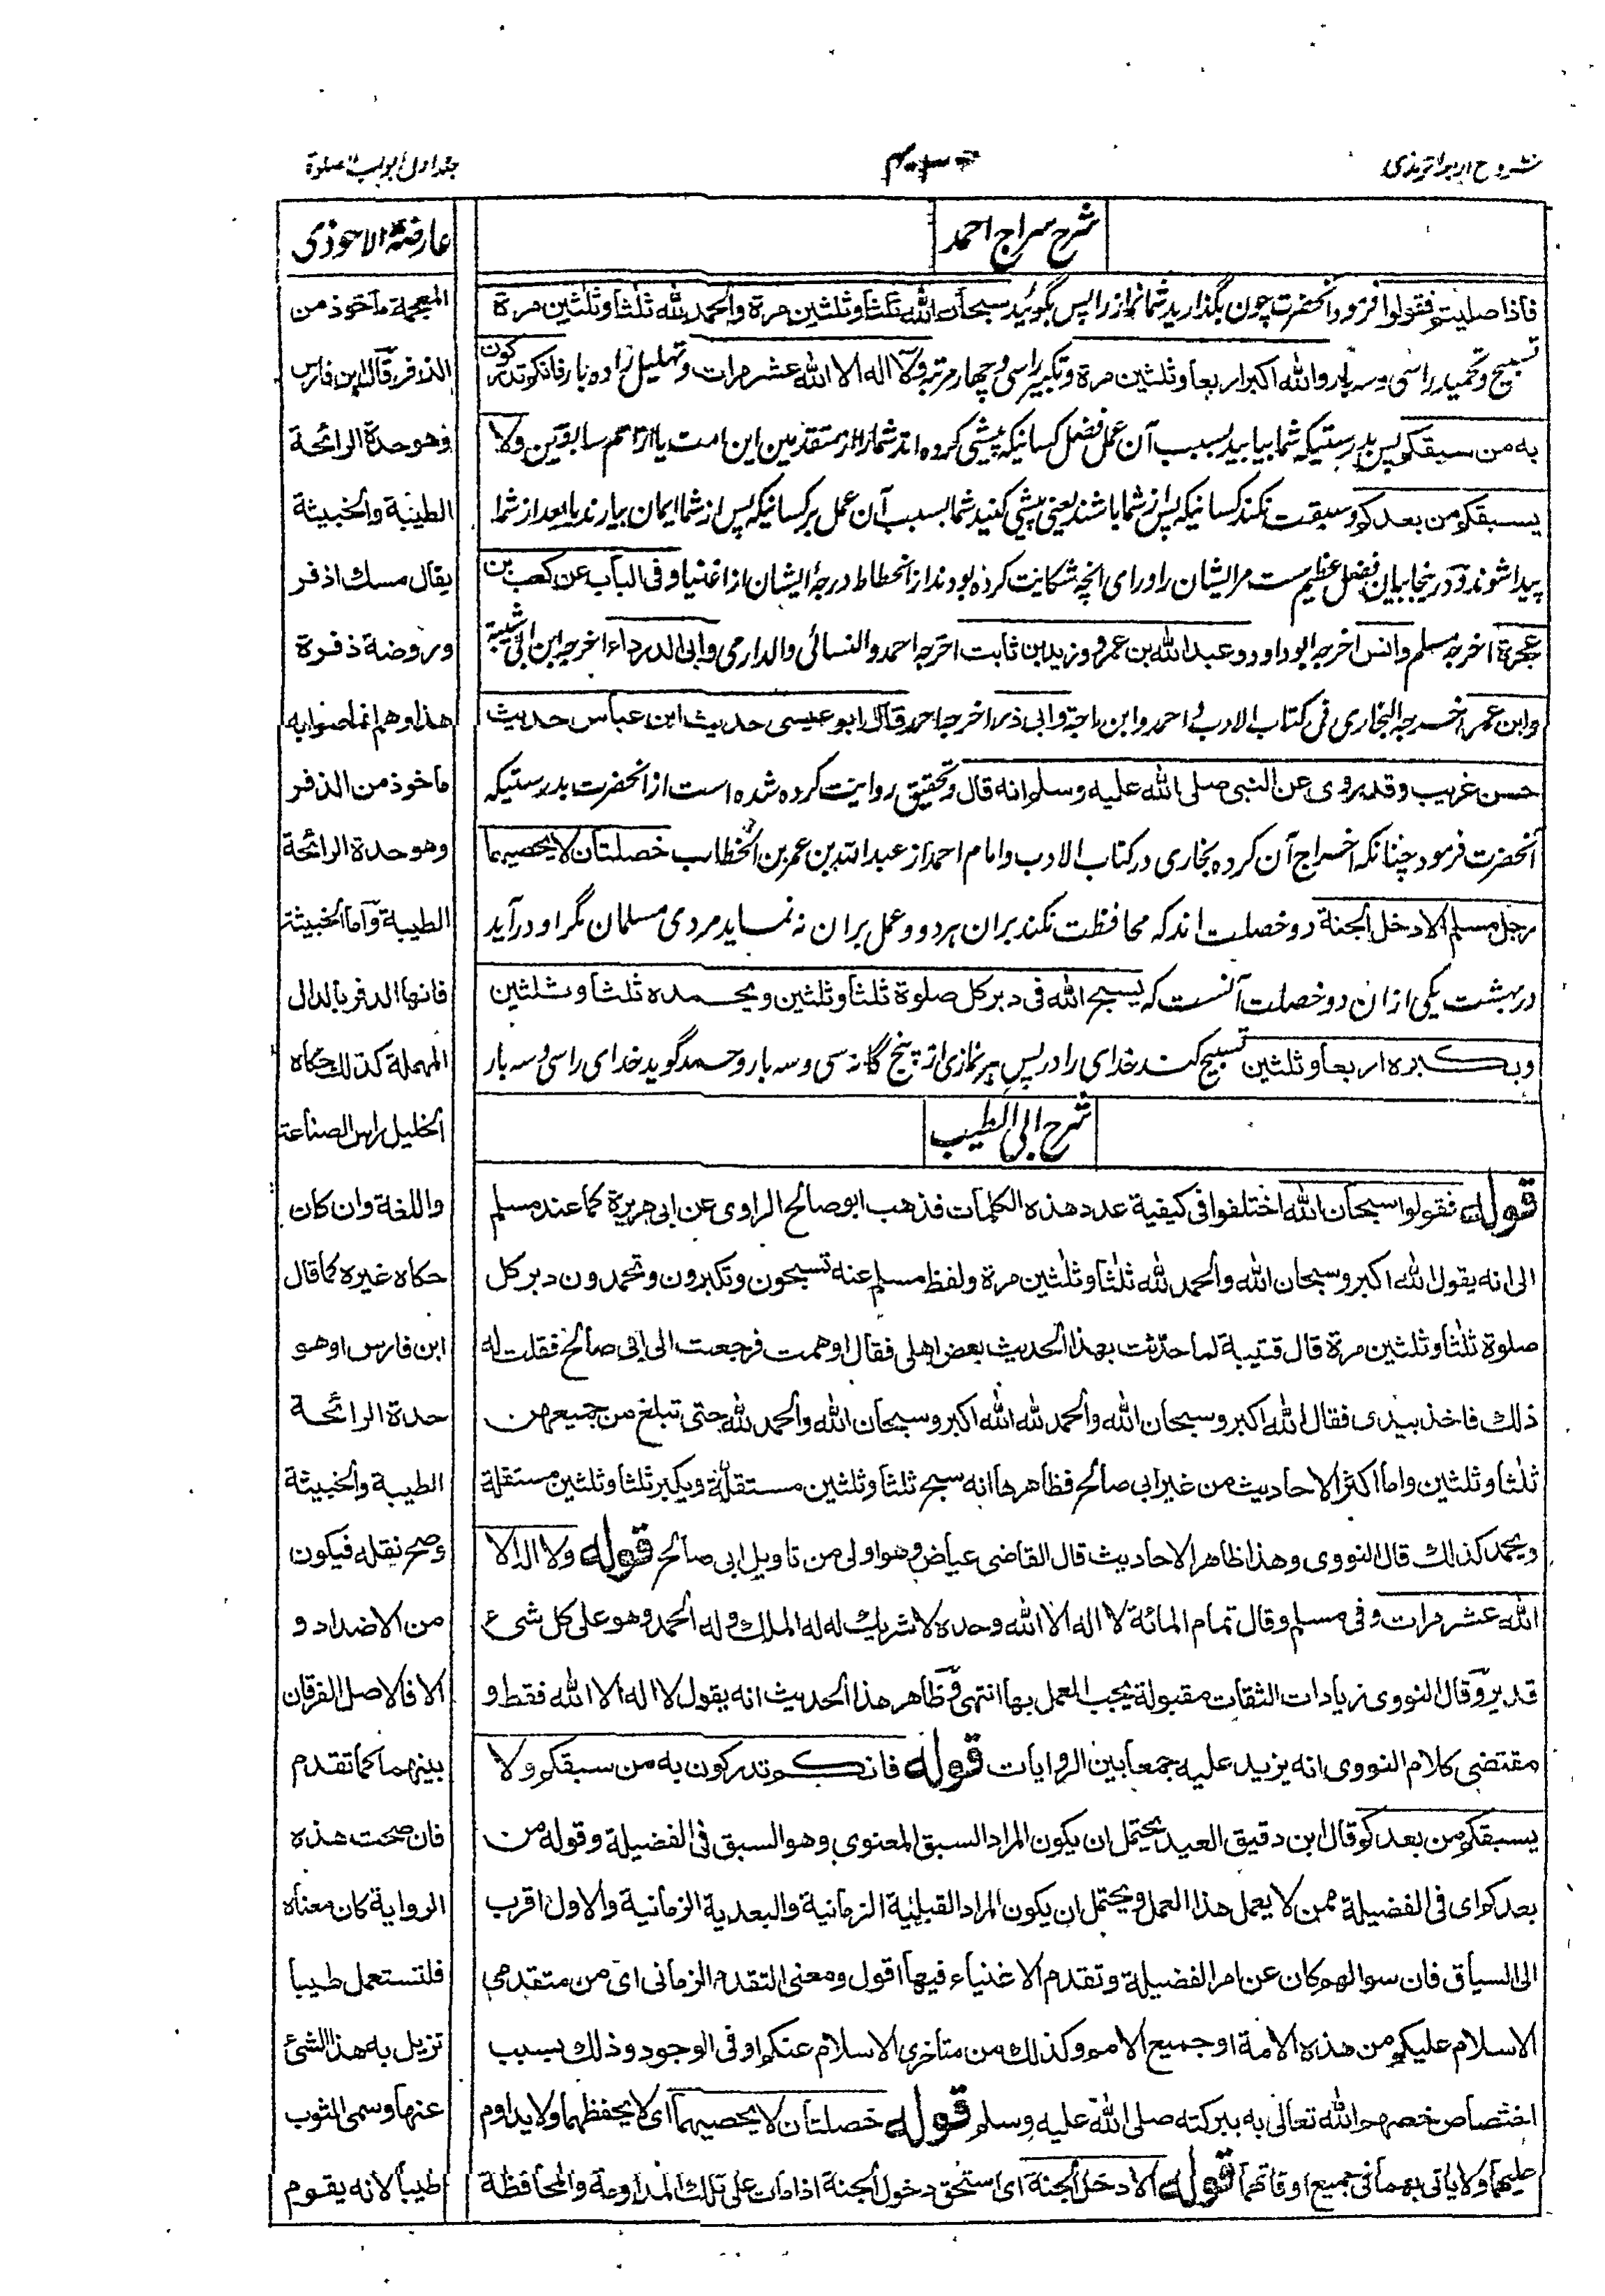 شروح اربعۀ ترمذی
جلد اول ابواب الصلوة
شرح سراج احمد
فاذا صلیتم فقولوا فرمود آنحضرت چون بگذارید شما نماز را پس بگوئید سبحان الله ثلثا وثلثین مرة والحمد لله ثلثا وثلثین مرة
تسبیح وتحمید را سی وسه بار والله اکبر اربعا وثلثین مرة وتکبیر را سی وچهار مرتبه ولا اله الا الله عشر مرات وتهلیل را ده بار فانکم تدرکون
به من سبقکم پس بدرستیکه شما بیابید بسبب آن عمل فضل کسانیکه پیشی کرده اند شما را از متقدمین این امت یا از امم سابقین ولا
یسبقکم من بعدکم وسبقت نکند کسانیکه پس از شما باشند یعنی پیشی کنید شما بسبب آن عمل بر کسانیکه پس از شما ایمان بیارند یا بعد از شما
پیدا شوند ودرینجا بیان فضل عظیم ست مرایشان را ورای آنچه شکایت کرده بودند از انحطاط درجۀ ایشان از اغنیا وفی الباب عن کعب بن
عجرة اخرجه مسلم وانس اخرجه ابو داود وعبد الله بن عمرو وزید بن ثابت اخرجه احمد والنسائی والدارمی وابی الدرداء اخرجه ابن ابی شیبة
وابن عمر اخرجه البخاری فی کتاب الادب واحمد وابن ماجة وابی ذر اخرجه احمد قال ابو عیسی حدیث ابن عباس حدیث
حسن غریب وقد روی عن النبی صلی الله علیه وسلم انه قال وتحقیق روایت کرده شده است از آنحضرت بدرستیکه
آنحضرت فرمود چنانکه اخراج آن کرده بخاری در کتاب الادب وامام احمد از عبد الله بن عمر بن الخطاب خصلتان لا یحصیهما
رجل مسلم الا دخل الجنة دو خصلت اند که محافظت نکند بران هر دو وعمل بران نه نماید مردی مسلمان مگر او درآید
در بهشت یکی ازان دو خصلت آنست که یسبح الله فی دبر کل صلوة ثلثا وثلثین ویحمده ثلثا وثلثین
ویکبره اربعا وثلثین تسبیح کند خدای را در پس هر نمازی از پنج گانه سی وسه بار وحمد گوید خدای را سی وسه بار
شرح ابی الطیب
قوله فقولوا سبحان الله اختلفوا فی کیفیة عدد هذه الکلمات فذهب ابو صالح الراوی عن ابی هریرة کما عند مسلم
الی انه یقول الله اکبر وسبحان الله والحمد لله ثلثا وثلثین مرة ولفظ مسلم عنه تسبحون وتکبرون وتحمدون دبر کل
صلوة ثلثا وثلثین مرة قال قتیبة لما حدثت بهذا الحدیث بعض اهلی فقال اوهمت فرجعت الی ابی صالح فقلت له
ذلک فاخذ بیدی فقال الله اکبر وسبحان الله والحمد لله الله اکبر وسبحان الله والحمد لله حتی تبلغ من جمیعهن
ثلثا وثلثین واما اکثر الاحادیث من غیر ابی صالح فظاهرها انه سبح ثلثا وثلثین مستقلة ویکبر ثلثا وثلثین مستقلة
ویحمد کذلک قال النووی وهذا ظاهر الاحادیث قال القاضی عیاض وهو اولی من تاویل ابی صالح قوله ولا اله الا
الله عشر مرات وفی مسلم وقال تمام المائة لا اله الا الله وحده لا شریک له له الملک وله الحمد وهو علی کل شیء
قدیر وقال النووی زیادات الثقات مقبولة یجب العمل بها انتهی وظاهر هذا الحدیث انه یقول لا اله الا الله فقط و
مقتضی کلام النووی انه یزید علیه جمعا بین الروایات قوله فانکم تدرکون به من سبقکم ولا
یسبقکم من بعدکم قال ابن دقیق العید یحتمل ان یکون المراد السبق المعنوی وهو السبق فی الفضیلة وقوله من
بعدکم ای فی الفضیلة ممن لا یعمل هذا العمل ویحتمل ان یکون المراد القبلیة الزمانیة والبعدیة الزمانیة والاول اقرب
الی السیاق فان سوالهم کان عن امر الفضیلة وتقدم الاغنیاء فیها اقول ومعنی التقدم الزمانی ای من متقدمی
الاسلام علیکم من هذه الامة او جمیع الامم وکذلک من متأخری الاسلام عنکم او فی الوجود وذلک بسبب
اختصاص خصهم الله تعالی به ببرکته صلی الله علیه وسلم قوله خصلتان لا یحصیهما ای لا یحفظهما ولا یداوم
علیهما ولا یاتی بهما فی جمیع اوقاتهما قوله الا دخل الجنة ای استحق دخول الجنة اذا مات علی تلک المداومة والمحافظة
عارضة الاحوذی
المعجمة ماخوذ من
الذفر قال ابن فارس
وهو حدة الرائحة
الطیبة والخبیثة
یقال مسک اذفر
وروضة ذفرة
هذا وهم انما صوابه
ماخوذ من الذفر
وهو حدة الرائحة
الطیبة واما الخبیثة
فانها الدفر بالدال
المهملة کذلک حکاه
الخلیل راس الصناعة
واللغة وان کان
حکاه غیره کما قال
ابن فارس او هو
حدة الرائحة
الطیبة والخبیثة
وصح نقله فیکون
من الاضداد و
الا فالاصل الفرقان
بینهما کما تقدم
فان صحت هذه
الروایة کان معناه
فلتستعمل طیبا
تزیل به هذا الشئ
عنها وسمی الثوب
طیبا لانه یقوم